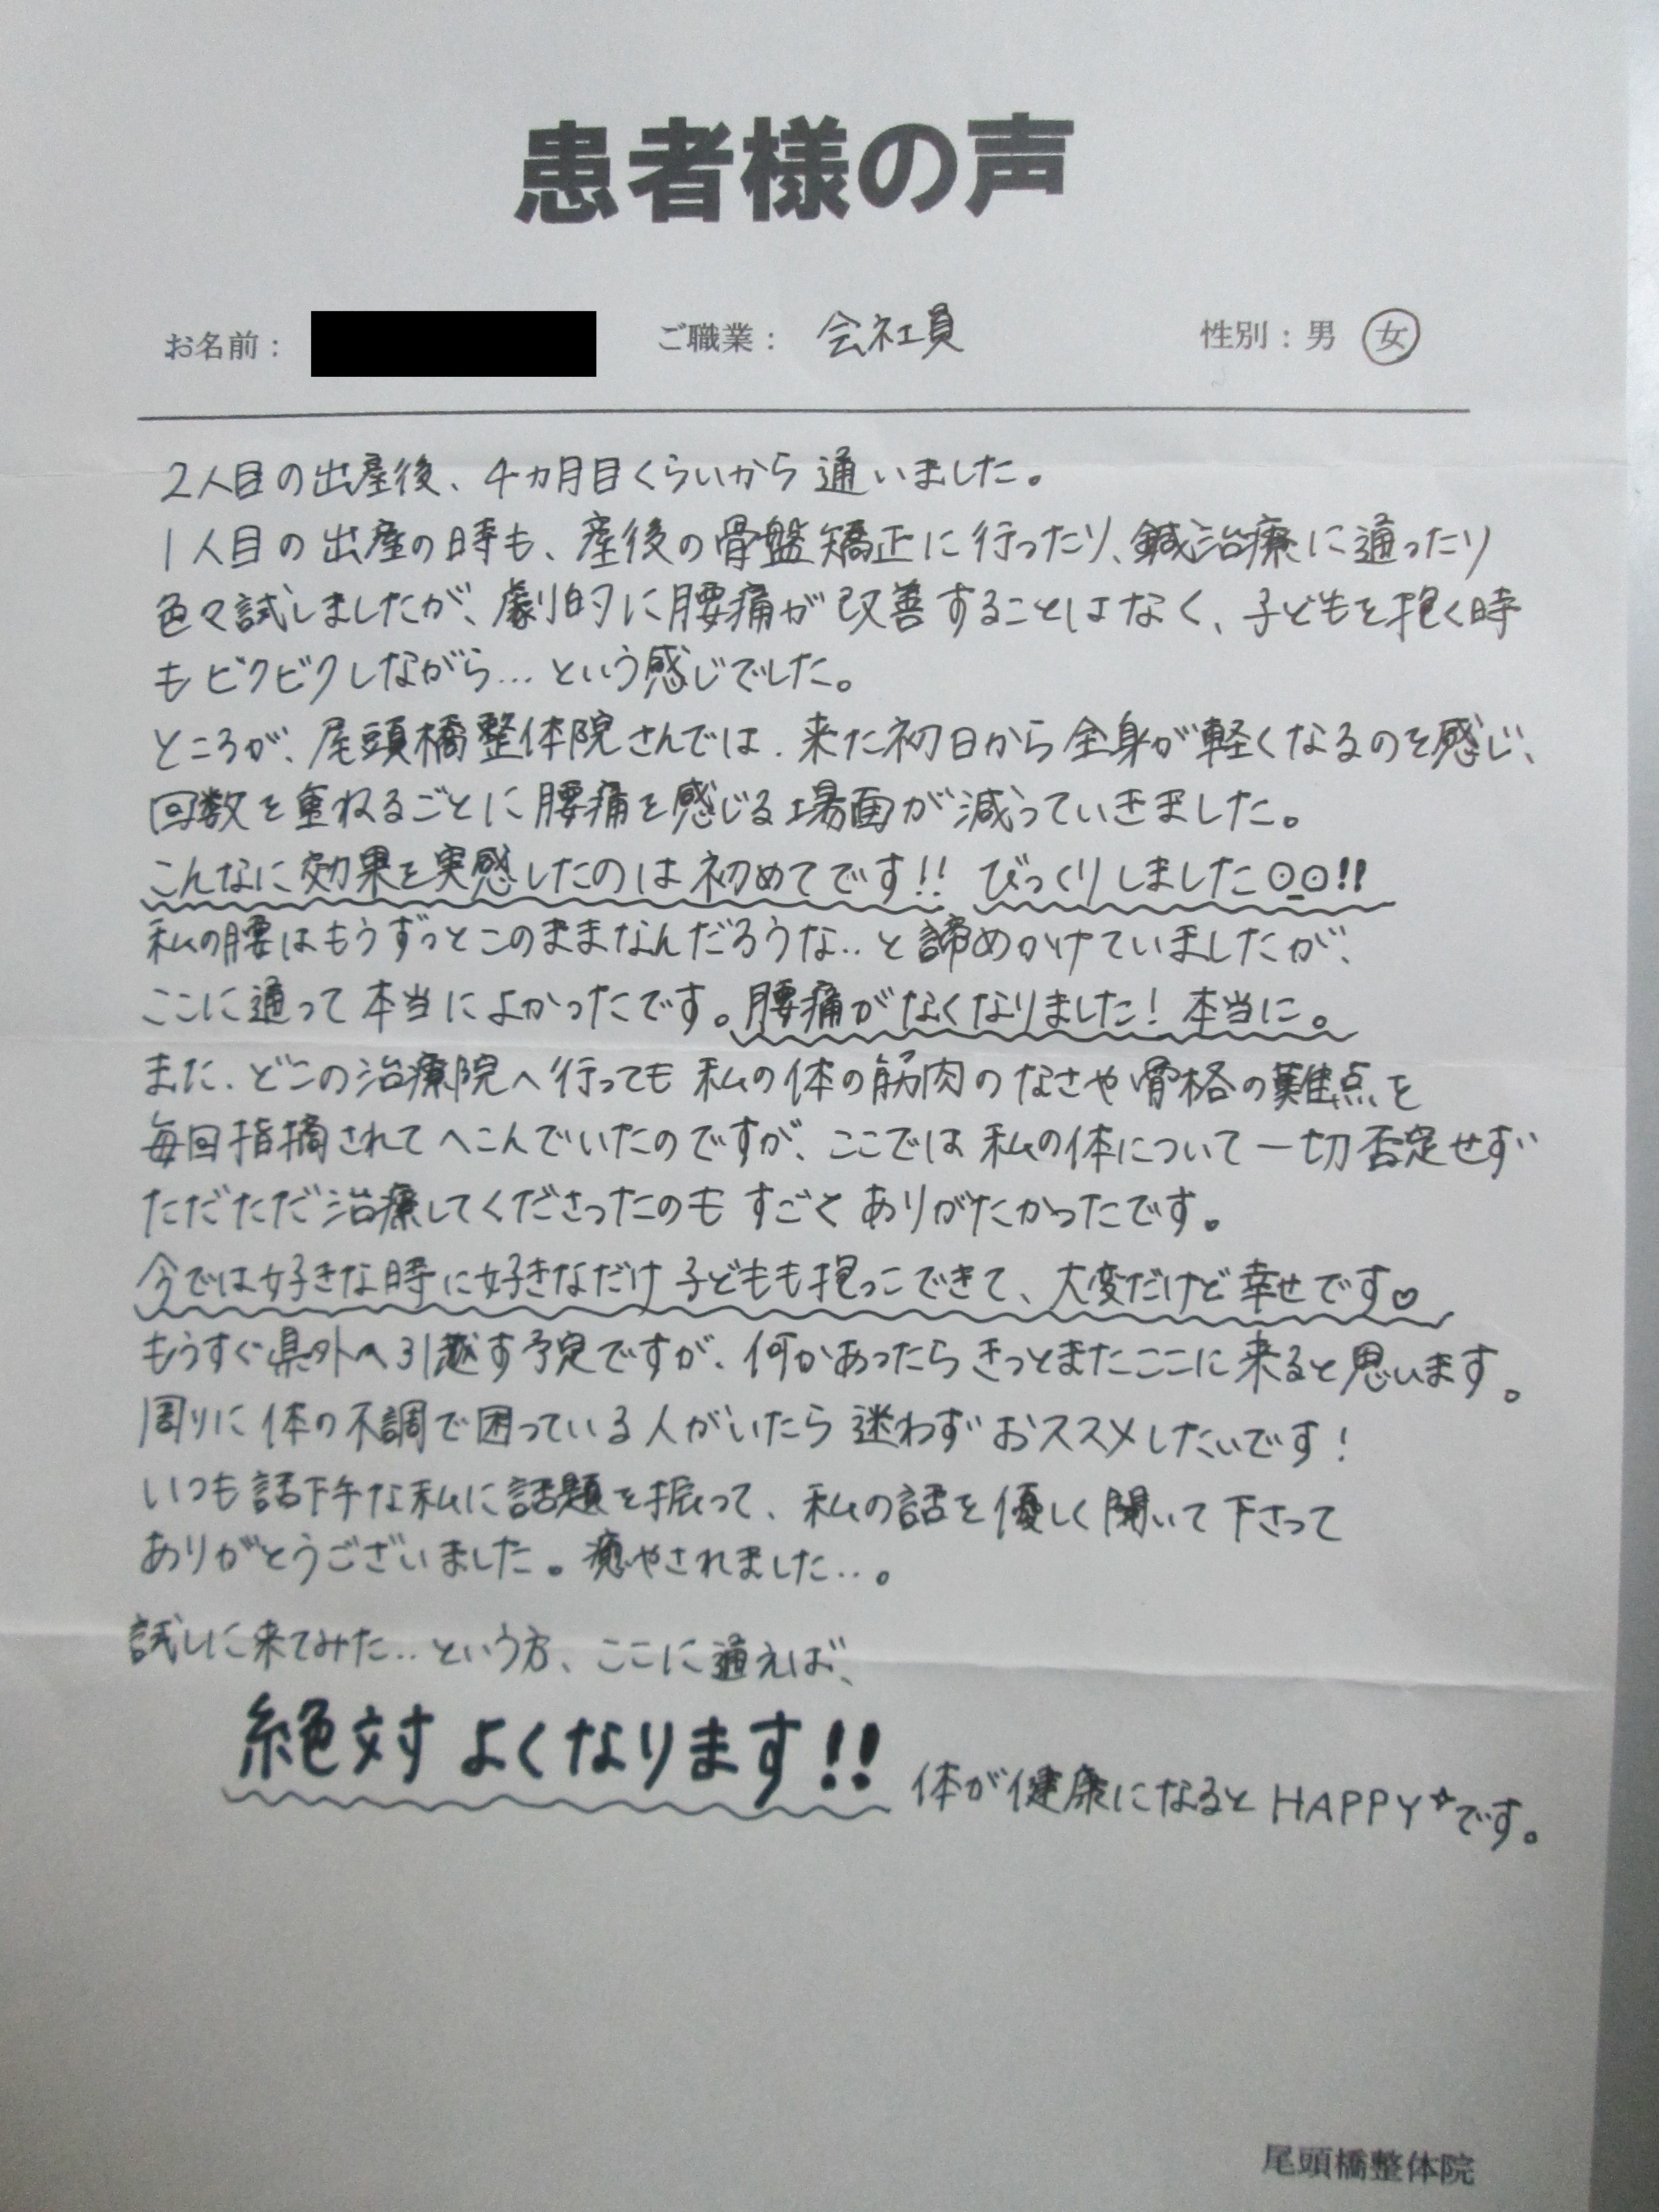 患者様の声
お名前： ご職業： 会社員 性別：男 女
2人目の出産後、4ヵ月目くらいから通いました。
1人目の出産の時も、産後の骨盤矯正に行ったり、鍼治療に通ったり
色々試しましたが、劇的に腰痛が改善することはなく、子どもを抱く時
もビクビクしながら…という感じでした。
ところが、尾頭橋整体院さんでは、来た初日から全身が軽くなるのを感じ、
回数を重ねるごとに腰痛を感じる場面が減っていきました。
こんなに効果を実感したのは初めてです!! びっくりしました⊙_⊙!!
私の腰はもうずっとこのままなんだろうな‥と諦めかけていましたが、
ここに通って本当によかったです。腰痛がなくなりました！本当に。
また、どこの治療院へ行っても私の体の筋肉のなさや骨格の難点を
毎回指摘されてへこんでいたのですが、ここでは私の体について一切否定せず
ただただ治療してくださったのもすごくありがたかったです。
今では好きな時に好きなだけ子どもも抱っこできて、大変だけど幸せです♡
もうすぐ県外へ引越す予定ですが、何かあったらきっとまたここに来ると思います。
周りに体の不調で困っている人がいたら迷わずおススメしたいです！
いつも話下手な私に話題を振って、私の話を優しく聞いて下さって
ありがとうございました。癒やされました‥。
試しに来てみた‥という方、ここに通えば、
絶対よくなります!! 体が健康になるとHAPPY✧です。
尾頭橋整体院